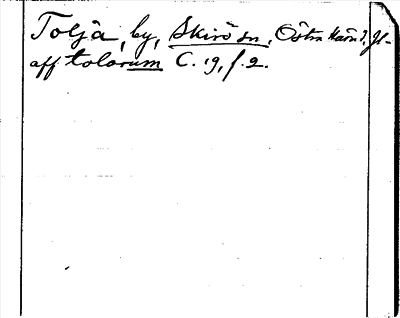 Toljå, by, Skirö sn, Östra härad, Jl-
aff tolorum C. 19, f. 2.